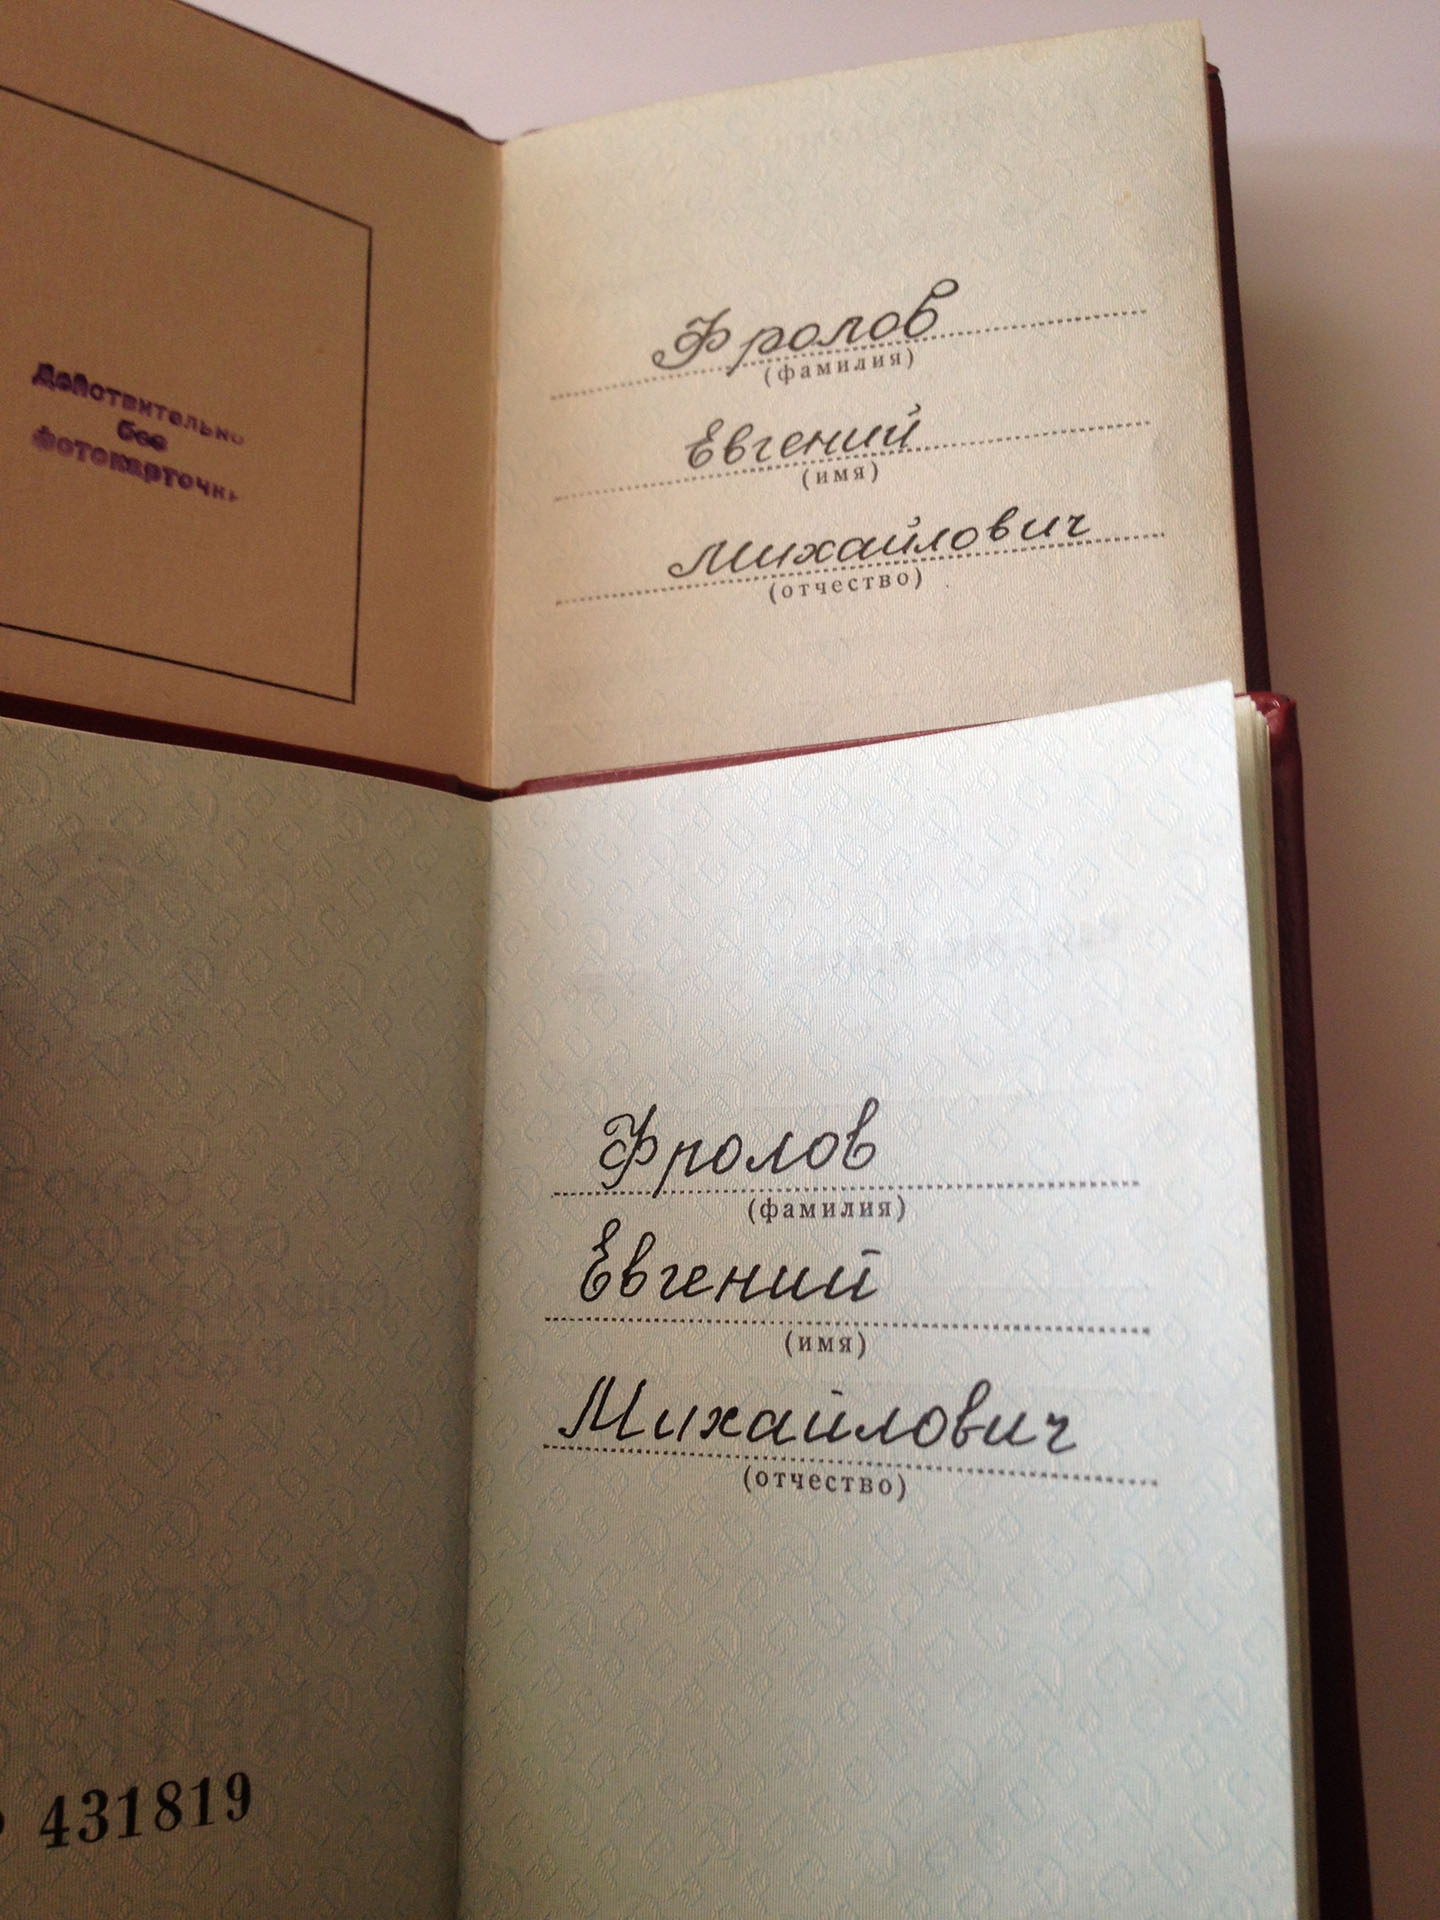 Действительно
без
фотокарточки
Фролов
(фамилия)
Евгений
(имя)
Михайлович
(отчество)
Фролов
(фамилия)
Евгений
(имя)
Михайлович
(отчество)
431819